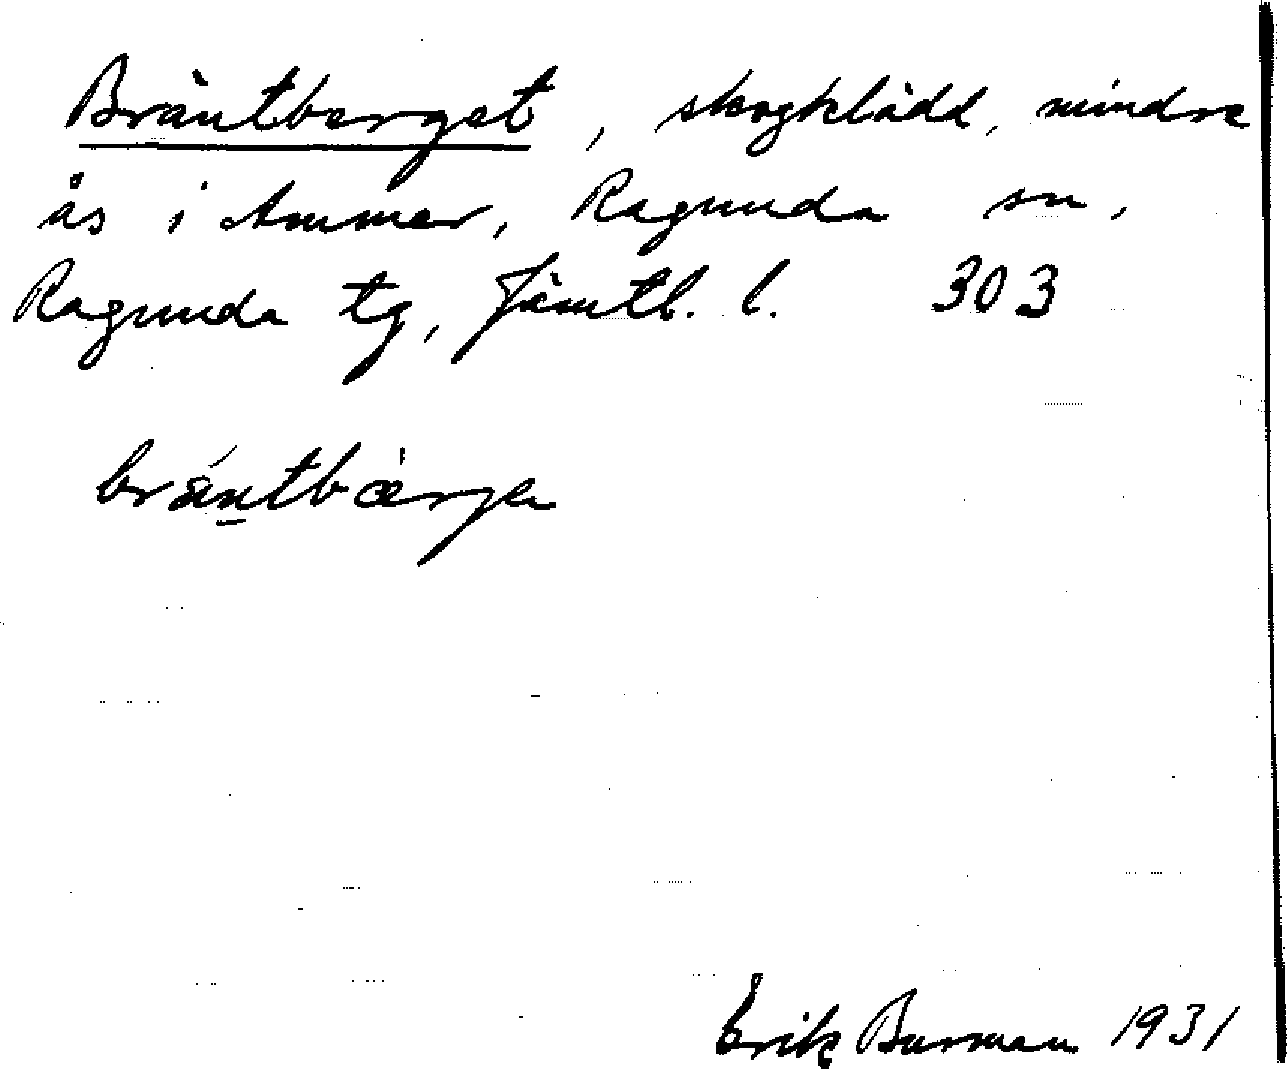 Bräntberget, skogklädd, mindre
ås i Ammer, Ragunda sn,
Ragunda tg, Jämtl. l. 303
bräntbærjen
Erik Burman 1931